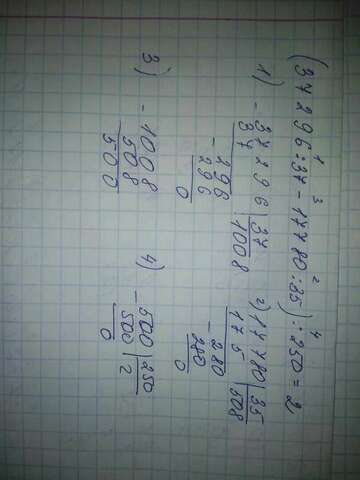 1 3 2 4
(37296:37-17780:35):250=2
1) - 37296 | 37
37 | 1008
- 296
296
0
2) - 17780 | 35
175 | 508
- 280
280
0
3) - 1008
508
500
4) - 500 | 250
500 | 2
0